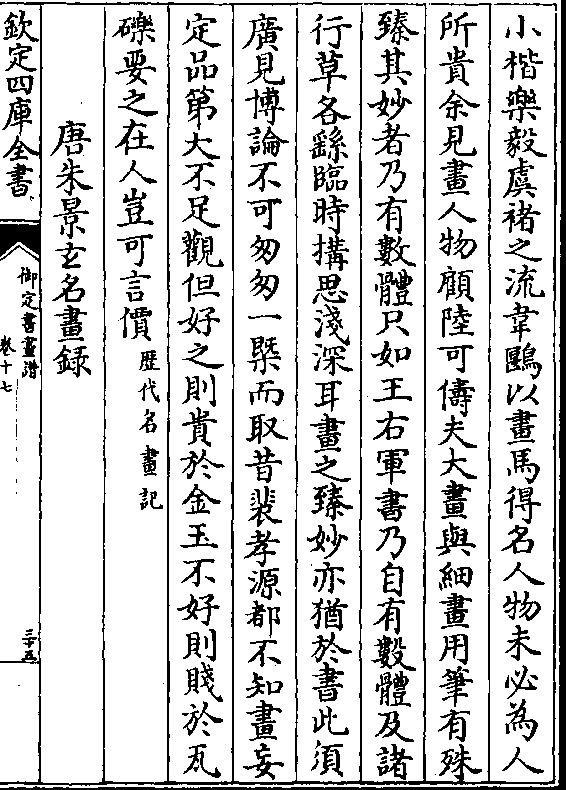 小楷樂毅虞褚之流韋鷗以畫馬得名人物未必為人
所貴余見畫人物顧陸可儔夫大畫與細畫用筆有殊
臻其妙者乃有數體只如王右軍書乃自有數體及諸
行草各繇臨時搆思淺深耳畫之臻妙亦猶於書此須
廣見博論不可匆匆一槩而取昔裴孝源都不知畫妄
定品第大不足觀但好之則貴於金玉不好則賤於瓦
礫要之在人豈可言價歷代名畫記
唐朱景玄名畫録
欽定四庫全書
御定書畫譜
卷十七
三十五